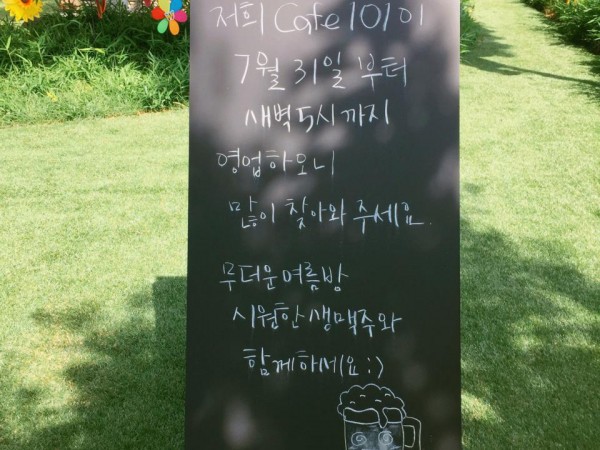 저희 Cafe 101이
7월 31일 부터
새벽 5시 까지
영업하오니
많이 찾아와 주세요.
무더운 여름밤
시원한 생맥주와
함께하세요 :)